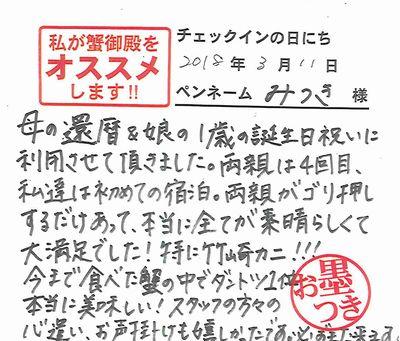 私が蟹御殿を
オススメ
します!!
チェックインの日にち
2018年3月11日
ペンネーム みつき 様
母の還暦&娘の1歳の誕生日祝いに
利用させて頂きました。両親は4回目、
私達は初めての宿泊。両親がゴリ押し
するだけあって、本当に全てが素晴らしくて
大満足でした!特に竹崎カニ!!!
今まで食べた蟹の中でダントツ1位
本当に美味しい!スタッフの方々の
心遣い、お声掛けも嬉しかったです。
お墨つき